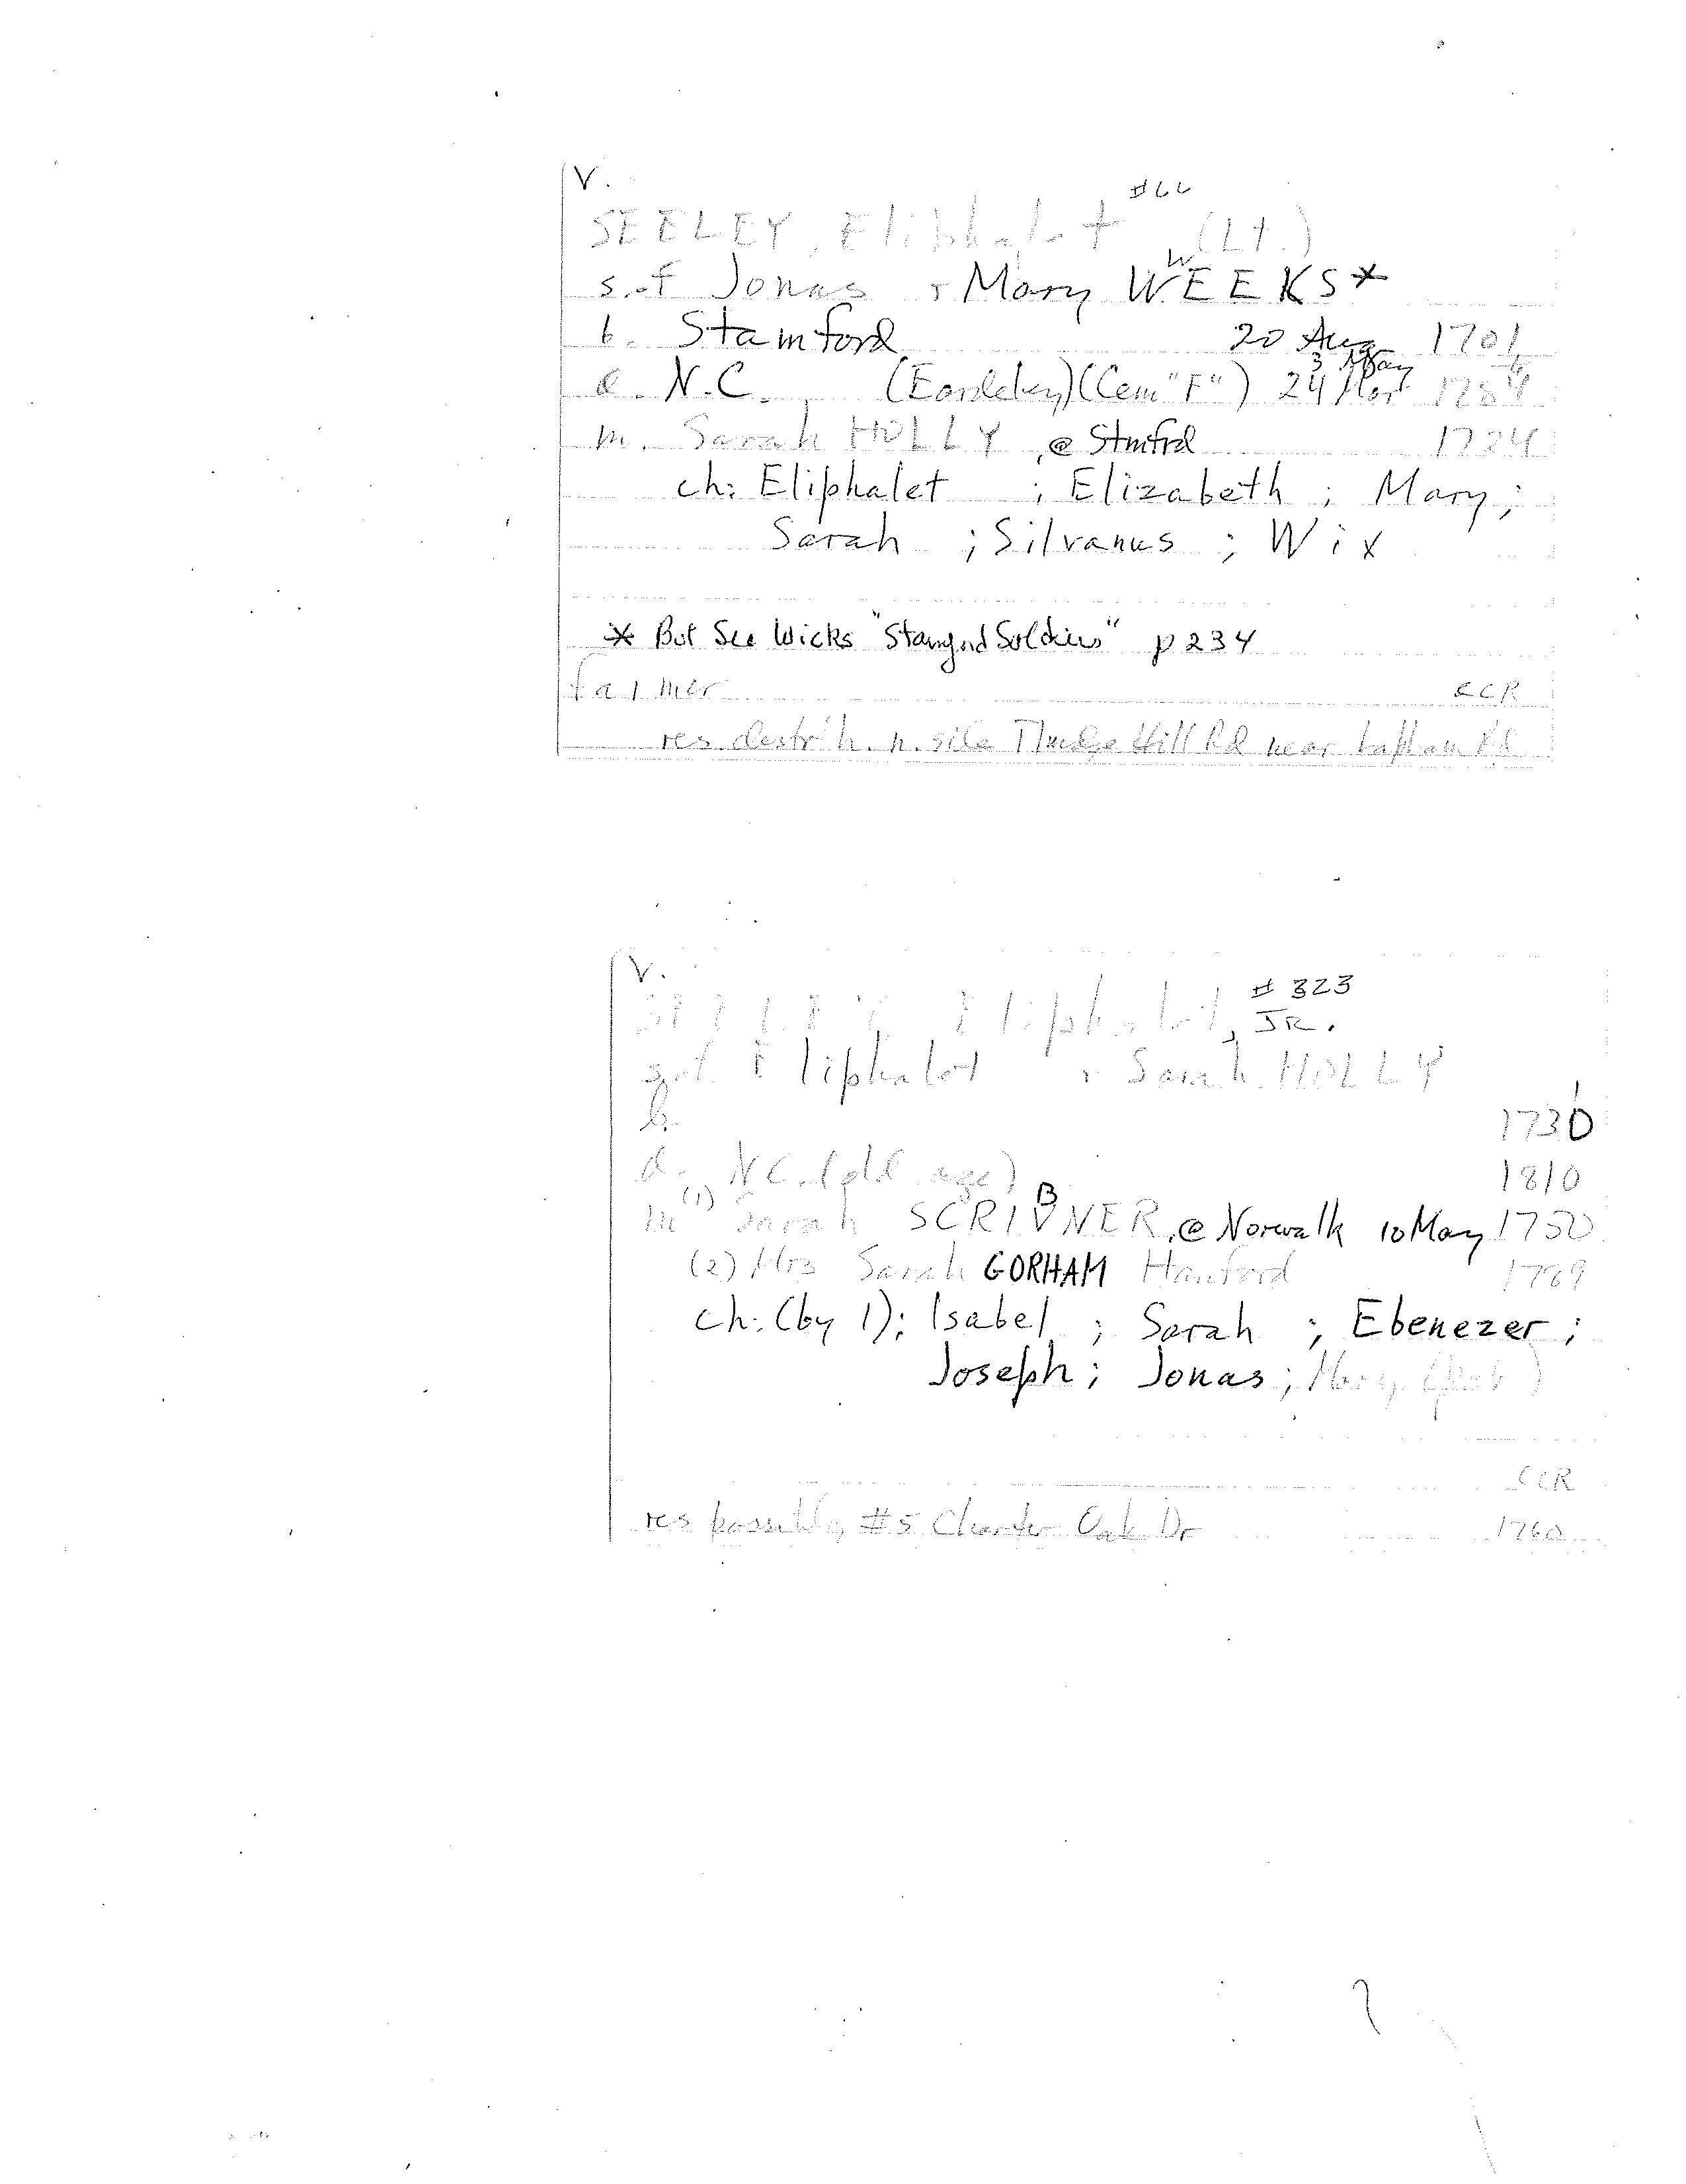 V.
#66
SEELEY, Eliphalet (Lt.)
W
s.of Jonas + Mary WEEKS*
b. Stamford 20 Aug 1701
3 May
d. N.C. (Eardeley)(Cem "F") 24 Mar 1784
m. Sarah HOLLY, @ Stmfrd 1724
ch: Eliphalet ; Elizabeth ; Mary;
Sarah ; Silvanus ; Wix
* But See Wicks "Stamford Soldiers" p 234
farmer CCR
res. n. side Hill Rd near Lapham Rd
V.
# 323
SEELEY Eliphalet, JR.
s.of Eliphalet + Sarah HOLLY
1
b. 1730
d. N.C. (old age) 1810
B
m (1) Sarah SCRIVNER, @ Norwalk 10 May 1750
(2) Mrs Sarah GORHAM Hanford 1789
ch: (by 1); Isabel ; Sarah ; Ebenezer ;
Joseph ; Jonas ; Mary
CCR
res possibly #5 Charter Oak Dr 1760